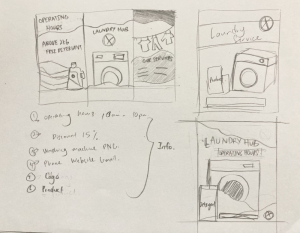 OPERATING
HOURS
ABOVE 5KG
FREE DETERGENT
LAUNDRY HUB
OUR SERVICES
Laundry
Service
Product
① Opening hours
② Discount 15%
③ Washing machine PNG.
④ Phone Website Email.
⑤ Logo
⑥ Product
Info.
LAUNDRY HUB
OPENING HOURS
Detergent